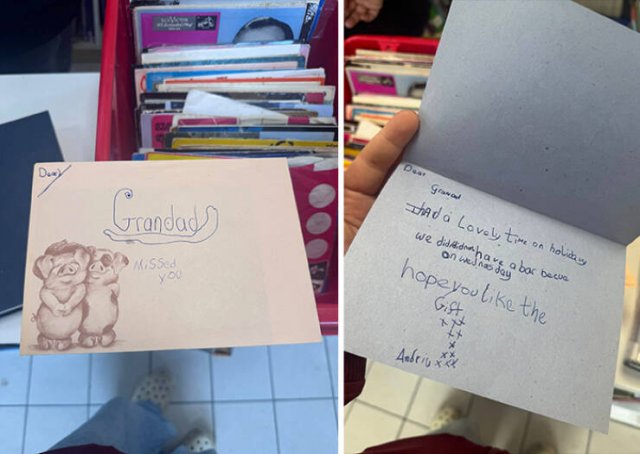 Dear
Grandad
Missed
you
Dear
Grandad
I HAD a Lovely time on holiday
we did have a bar becue
on wednesday
hope you Like the
Gift
xxx
xx
x
xx
Andriu xxx